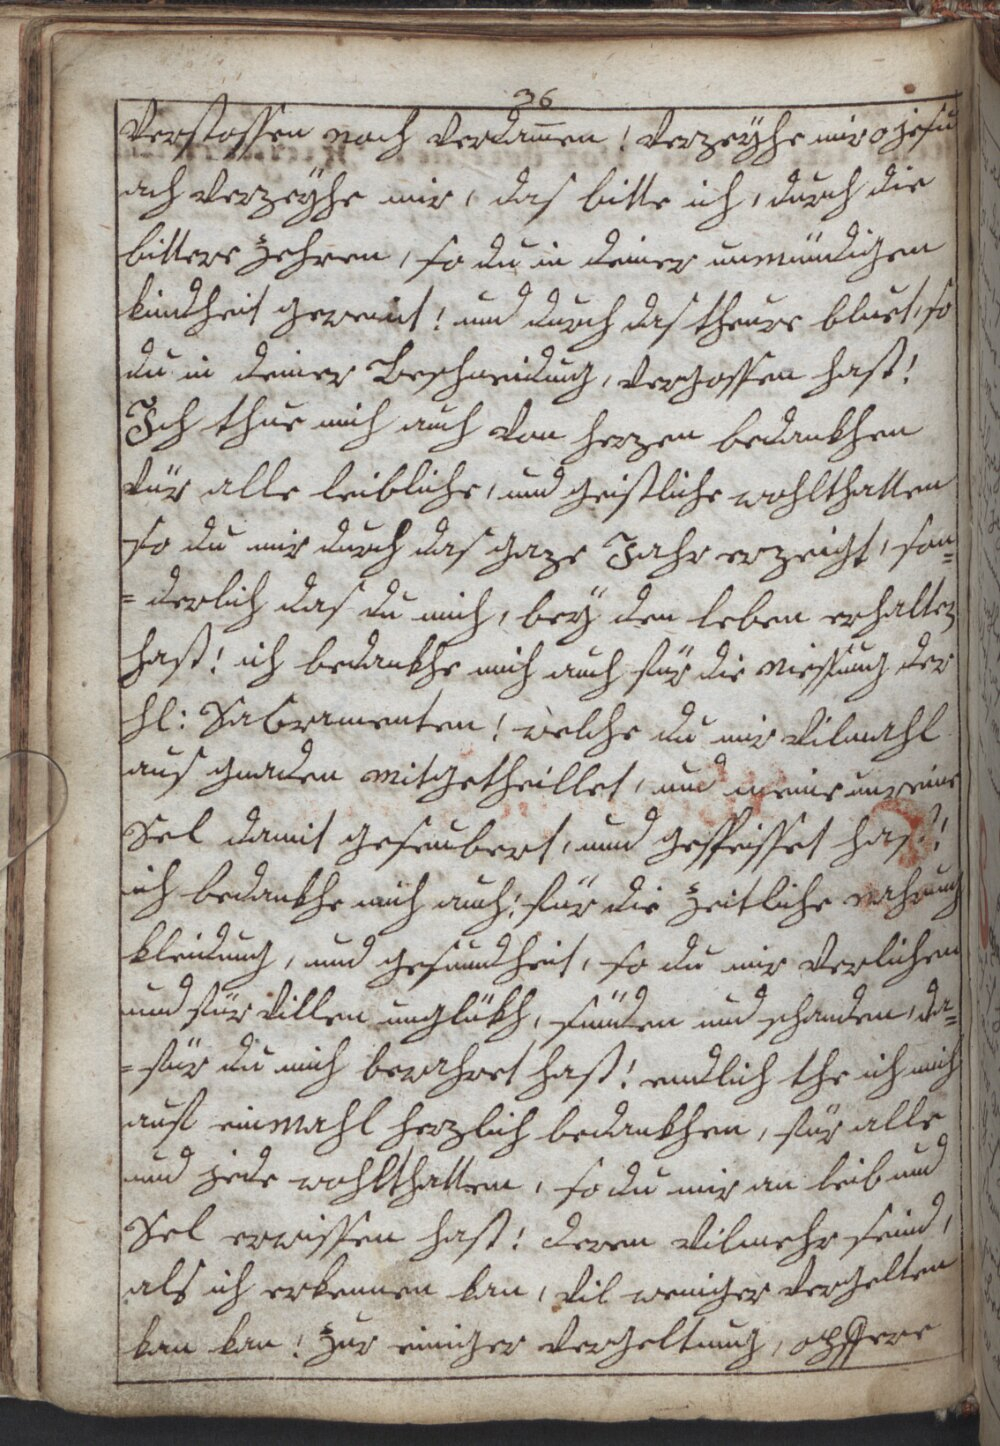 36
verstossen noch verdamen! verzeÿhe mir o jesu
ach verzeÿhe mir, das bitte ich, durch die
bittere zehren, so du in deiner unmündigen
kindheit geweint! und durch das theure bluet, so
du in deiner Beschneidung, vergossen hast!
Ich thue mich auch von herzen bedankhen
für alle leibliche, und geistliche wohlthatten
so du mir durch das ganze Jahr erzeigt, son=
=derlich das du mich, beÿ den leben erhalten
hast! ich bedankhe mich auch für die niessung der
hl: Sacramenten! welche du mir vilmahl
aus gnaden mitgetheillet, und meine unreine
Sel damit geseubert, und gespeisset hast!
ich bedankhe mich auch, für die zeitliche nahrung
kleidung, und gesundheit, so du mir verlichen
und für villen unglükh, sünden und schanden, da=
=für du mich bewahret hast! endlich the ich mich
auf einmahl herzlich bedankhen, für alle
und jede wohlthatten, so du mir an leib und
Sel erwissen hast! deren vilmehr seind,
als ich erkennen kan, vil weniger vergelten
kan kan! zur einiger vergeltung, opffere